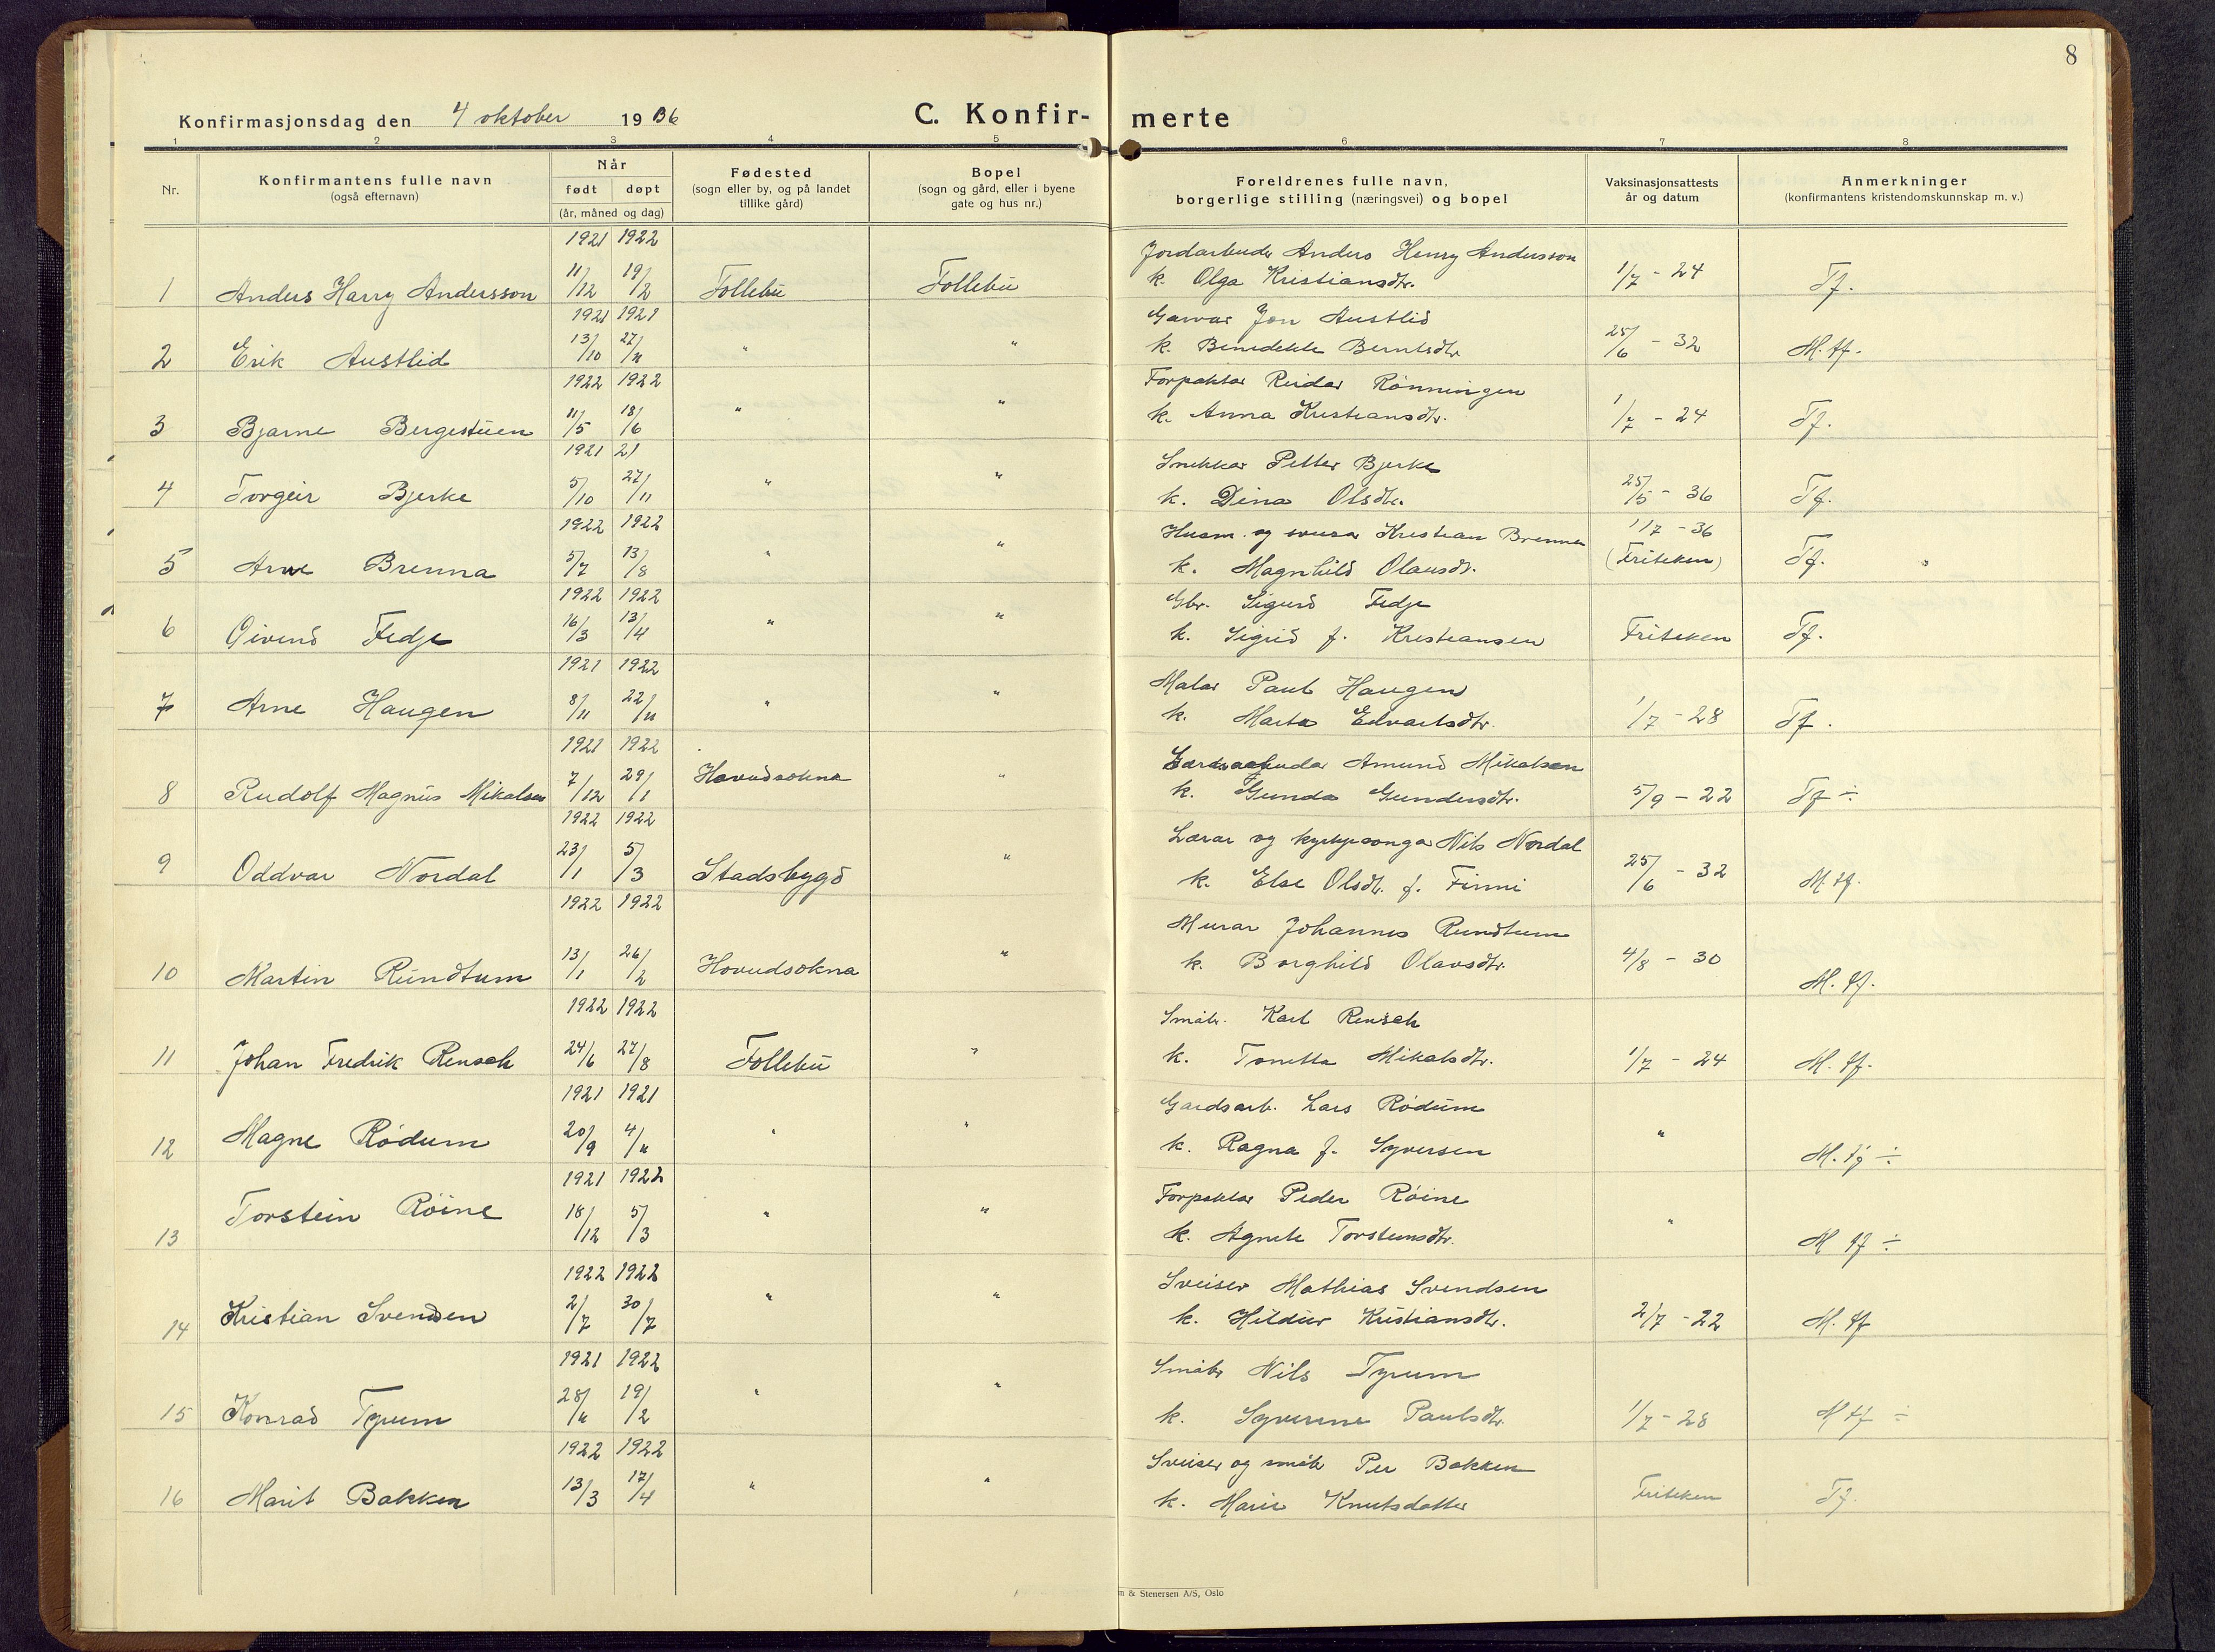 8
Konfirmasjonsdag den 4 oktober 1936
C. Konfir- merte
1 2 3 4 5 6 7 8
Nr.
Konfirmantens fulle navn
(også efternavn)
Når
født døpt
(år, måned og dag)
Fødested
(sogn eller by, og på landet
tillike gård)
Bopel
(sogn og gård, eller i byene
gate og hus nr.)
Foreldrenes fulle navn,
borgerlige stilling (næringsvei) og bopel
Vaksinasjonsattests
år og datum
Anmerkninger
(konfirmantens kristendomskunnskap m. v.)
1921 1922 Jordarbeider Anders Henry Andersson
1 Anders Harry Andersson 11/12 19/2 Follebu Follebu k. Olga Kristiansdtr. 1/7 - 24 Tf.
1921 1921 Garvar Jon Austlid
2 Erik Austlid 13/10 27/11 " " k. Benedikte Berntsdtr 25/6 - 32 M. tf.
1922 1922 Forpaktar Reidar Rønningen
3 Bjarne Bergestuen 11/5 18/6 " " k. Anna Kristiansdtr. 1/7 - 24 Tf.
1921 21 Snekkar Petter Bjerke
4 Torgeir Bjerke 5/10 27/11 " " k. Dina Olsdtr. 25/5 - 36 Tf.
1922 1922 Husm. og sveisar Kristian Brenna 1/7 - 36
5 Arne Brenna 5/7 13/8 " " k. Magnhild Olausdt. (Friteken) Tf.
1922 1922 Gbr. Sigurd Fedje
6 Øivend Fedje 16/3 13/4 " " k. Sigrid f. Kristiansen Friteken Tf.
1921 1922 Malar Paul Haugen
7 Arne Haugen 8/11 22/11 " " k. Marta Edvartsdtr. 1/7 - 28 Tf.
1921 1922 Amund Mikalsen
8 Rudolf Magnus Mikalsen 7/12 29/1 Hovudsokna " k. Gunda Gundersdtr. 5/9 - 22 Tf ÷
1922 1922 Lærar og kyrkjesongar Nils Nordal
9 Oddvar Nordal 23/1 5/3 Stadsbygd " k. Else Olsdt. f. Finni 25/6 - 32 M. tf.
1922 1922 Murar Johannes Rundtum
10 Martin Rundtum 13/1 26/2 Hovudsokna " k. Borghild Olavsdtr. 4/8 - 30 M. tf.
1922 1922 Småbr. Karl Rensch
11 Johan Fredrik Rensch 24/6 27/8 Follebu " k. Tonetta Mikalsdtr. 1/7 - 24 M. tf.
1921 1921 Gardsarb. Lars Rødum
12 Magne Rødum 20/9 4/11 " " k. Ragna f. Syversen " M. tf ÷
1921 1922 Forpaktar Peder Røine
13 Torstein Røine 18/12 5/3 " " k. Agnete Torsteinsdtr. " M tf ÷
1922 1922 Sveiser Mathias Svendsen
14 Kristian Svendsen 2/7 30/7 " " k. Hildur Kristiansdtr. 2/7 - 22 M. tf
1921 1922 Småbr Nils Tyrum
15 Konrad Tyrum 28/11 19/2 " " k. Syverine Paulsdtr. 1/7 - 28 M tf ÷
1922 1922 Sveiser og småbr Per Bakken
16 Marit Bakken 13/3 17/4 " " k. Marie Knutsdatter Friteken Tf.
m & Stenersen A/S, Oslo